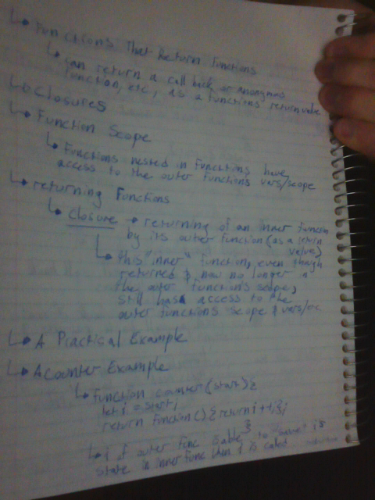 ↳ Functions That Return Functions
↳ can return a call back or Anonymous
function, etc., as a functions return value
↳ Closures
↳ Function Scope
↳ Functions nested in Functions have
access to the outer functions vars/scope
↳ returning Functions
↳ Closure → returning of an inner function
by its outer function (as a return
value)
↳ This "inner" function, even though
returned & now no longer in
the outer functions scope,
still has access to the
outer functions scope & vars/etc
↳ A Practical Example
↳ A counter Example
↳ function counter(start) {
let i = start;
return function() { return i++; };
↳ i of outer func is able to "save" its
state in inner func when i is called